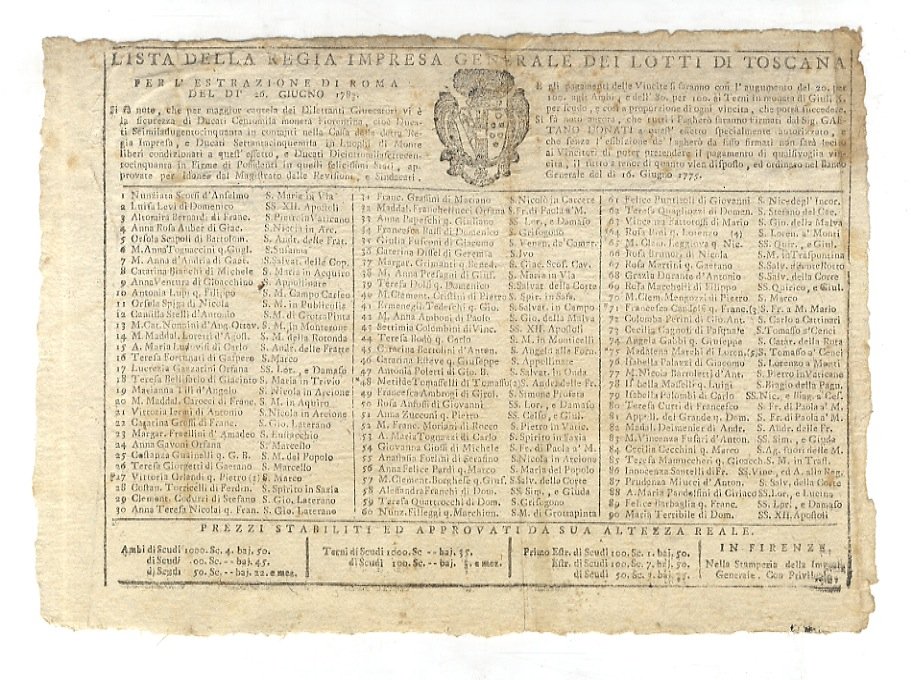 LISTA DELLA REGIA IMPRESA GENERALE DEI LOTTI DI TOSCANA
PER L'ESTRAZIONE DI ROMA
DEL DI' 26. GIUGNO 1783.
Si fà noto, che per maggior cautela dei Dilettanti Giuocatori vi è
la sicurezza di Ducati Centomila moneta Fiorentina, cioè Ducati
Seimiladugentocinquanta in contanti nella Cassa della detta Regia
Impresa, e Ducati Settantacinquemila in Luoghi di Monte
liberi condizionati a quest' effetto, e Ducati
in Firme di Possidenti in quelli felicissimi Stati, approvate
per idonee dal Magistrato delle Revisioni, e Sindacati.
E gli pagamenti delle Vincite si faranno con l'augumento del 20. per
100. agli Ambi, e dell' 80. per 100. ai Terni in moneta di Giuli X.
per scudo, e così a proporzione di ogni vincita, che potrà succedere.
Si fà noto ancora, che tutti i Pagherò saranno firmati dal Sig. GAETANO
DONATI a quest' effetto specialmente autorizzato, e
che senza l'esibizione de' Pagherò da esso firmati non sarà lecito
ai Vincitori di poter pretendere il pagamento di qualsivoglia vincita,
il tutto a tenore di quanto vien disposto, ed ordinato nel Bando
Generale del dì 16. Giugno 1775.
1 Nunziata Scorsi d'Anselmo S. Maria in Via
2 Luisa Levi di Domenico SS. XII. Apostoli
3 Altonaira Bernardi di Franc. S. Pietro in Vaticano
4 Anna Rosa Auber di Giac. S. Niccia in Arc.
5 Orsola Scapoli di Bartolom. S. Andr. delle Frat.
6 M. Anna Tognaccini q. Gius. S. Susanna
7 M. Anna d'Andria di Gaet. S. Salvat. delle Cop.
8 Catarina Bianchi di Michele S. Maria in Acquiro
9 Anna Ventura di Gioacchino S. Appollinare
10 Antonia Lupi q. Filippo S. M. Campo Carleo
11 Orsola Spiga di Nicola S. M. in Publicolis
12 Camilla Stelli d'Antonio S. M. di Grotta Pinta
13 M. Car. Nonnini d'Ang. Ottav. S. M. in Monterone
14 M. Maddal. Lorenzi d'Agost. S. M. della Rotonda
15 A. Maria Ludovisi di Carlo S. Andr. delle Fratte
16 Teresa Fortunati di Gaspero S. Marco
17 Lucrezia Gazzarini Orfana SS. Lor., e Damaso
18 Teresa Bellisario di Giacinto S. Maria in Trivio
19 Marianna Tilf d'Angelo S. Nicola in Arcione
20 M. Maddal. Carocci di Franc. S. M. in Aquiro
21 Vittoria Iersi di Antonio S. Nicola in Arcione
22 Catarina Grossi di Franc. S. Gio. Laterano
23 Margar. Frezllini d'Amadeo S. Eustacchio
24 Anna Gavoni Orfana S. Marcello
25 Costanza Guainelli q. G. B. S. M. del Popolo
26 Teresa Giorgetti di Gaetano S. Marcello
*27 Vittoria Orlandi q. Pietro S. Marco
28 Costan. Torricelli di Ferdin. S. Spirito in Sasia
29 Clement. Codurri di Stefano S. Gio. Laterano
30 Anna Teresa Nicolai q. Fran. S. Gio. Laterano
31 Franc. Grassini di Mariano S. Nicolò in Carcere
32 Maddal. Franchellucci Orfana S. Fr. di Paola a' M.
33 Anna Papeschi q. Giuliano SS. Lor., e Damaso
34 Francesca Bassi di Domenico S. Grisogono
35 Giulia Fusconi di Giacomo S. Venan. de' Camer.
36 Caterina Diffel di Geremia S. Ivo
37 Margar. Grimanti q. Bened. S. Giac. Scos. Cav.
38 M. Anna Presagni di Giul. S. Maria in Via
39 Teresa Dolfi q. Domenico S. Salvat. della Corte
40 M. Clement. Crissini di Pietro S. Spir. in Sass.
41 Ermenegil. Tedeschi q. Gio. S. Salvat. in Campo
42 M. Anna Amboni di Paolo S. Gio. della Malva
43 Settimia Colombini di Vinc. SS. XII. Apostoli
44 Teresa Bodò q. Carlo S. M. in Monticelli
45 Caterina Bertolini d'Anton. S. Angelo alla Forn.
46 Catarina Esteve q. Giuseppe S. Appollinare
47 Antonia Poletti di Gio. B. S. Salvat. in Onda
*48 Metilde Tomasselli di Tomaso S. Andr. delle Fr.
49 Francesca Ambrogi di Girol. S. Simone Profeta
50 Rosa Anfossi di Giovanni SS. Lor., e Damaso
51 Anna Zucconi q. Pietro SS. Celso, e Giul.
52 M. Franc. Moriani di Rocco S. Pietro in Vatic.
53 A. Maria Tognazzi di Carlo S. Spirito in Sasia
54 Giovanna Giossi di Michele S. Fr. di Paola a' M.
55 Anastasia Forlini di Serafino S. Nicola in Arcione
56 Anna Felice Pardi q. Marco S. Maria del Popolo
57 M. Clement. Borghese q. Gius. S. Salv. della Corte
58 Alesandra Franchi di Dom. SS. Sim., e Giuda
59 Teresa Quattrocchi di Dom. S. Grisogono
60 Nunz. Filleggi q. Marchion. S. M. di Grottapinta
61 Felice Puntilozi di Giovanni S. Nic. degl' Incor.
62 Teresa Quagliozzi di Domen. S. Stefano del Cac.
63 Vincenza Fattorosi di Mario S. Gio. della Malva
*64 Rosa Boni q. Lorenzo S. Loren. a' Monti
65 M. Clem. Leggiova q. Nic. SS. Quir., e Giul.
66 Rosa Brunori di Nicola S. M. in Traspontina
67 Rosa Martini q. Gaetano S. Salv. a ponte Rotto
68 Grazia Durante d'Antonio S. Salv. della Corte
69 Rosa Marchelli di Filippo SS. Quirico, e Giul.
70 M. Clem. Mengozzi di Pietro S. Marco
*71 Francesca Campoli q. Franc. S. Fr. a M. Mario
72 Colomba Perini di Gio. Ant. S. Carlo a Cattinari
73 Cecilia Cagnoli di Pasquale S. Tomaso a' Cenci
74 Angela Gabbi q. Giuseppe S. Catar. della Rota
*75 Madalena Marchi di Loren. S. Tomaso a' Cenci
76 Isabella Palazzi di Giacomo S. Lorenzo a Monti
77 M. Nicola Barroletti d'Ant. S. Pietro in Vaticano
78 Isabella Masselli q. Luigi S. Biagio della Pagn.
79 Isabella Palombi di Carlo SS. Nic., e Biag. a Ces.
80 Teresa Curti di Francesco S. Fr. di Paola a' M.
81 Appol. del Grande q. Dom. S. Fr. di Paola a' M.
82 Madal. Delmenier di Andr. S. Andr. delle Fr.
83 M. Vincenza Fusari d'Anton. SS. Sim., e Giuda
84 Cecilia Cecchini q. Marco S. Ag. fuori delle M.
85 Teresa Mannucheri q. Gioacch. S. M. in Trast.
86 Innocenza Santelli di Fr. SS. Vinc., ed A. alle Reg.
87 Prudenza Miucci d'Anton. S. Salv. della Corte
88 A. Maria Pandolfini di Ciriaco SS. Lor., e Lucina
89 Felice Barbaglia q. Franc. SS. Lor., e Damaso
90 Maria Terribile di Dom. SS. XII. Apostoli
PREZZI STABILITI ED APPROVATI DA SUA ALTEZZA REALE.
Ambi di Scudi 1000. Sc. 4. baj. 50.
di Scudi 00. Sc. -- baj. 45.
di Scudi 50. Sc. -- baj. 22. e mez.
Terni di Scudi 1000. Sc -- baj. 35.
di Scudi 100. Sc. -- baj. 3. e mez.
Primo Estr. di Scudi 100. Sc. 1. baj. 50.
Estr. di Scudi 100. Sc. 7. baj. 50.
di Scudi 50. Sc. 3. baj. 75.
IN FIRENZE,
Nella Stamperia della Impresa
Generale. Con Privilegio